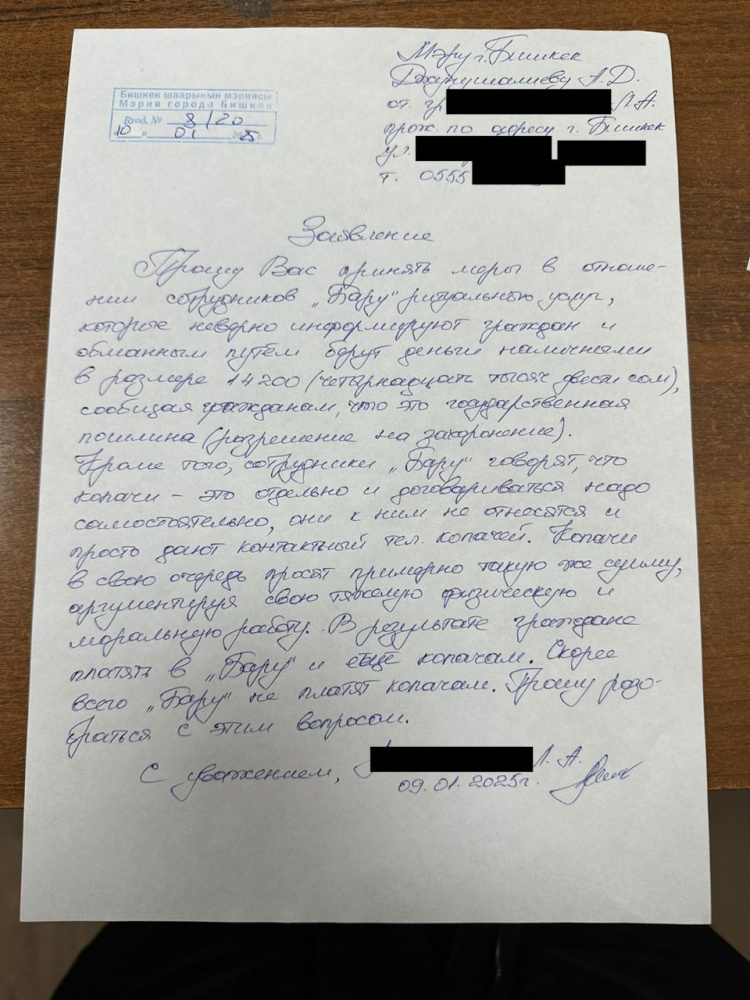 Мэру г. Бишкек
Джунушалиеву А. Д.
от гр Л. А.
прож. по адресу г. Бишкек
ул.
т. 0555
Бишкек шаарынын мэриясы
Мэрия города Бишкек
Вход. № 8/20
10 » 01 2025
Заявление
Прошу Вас принять меры в отноше-
нии сотрудников „Бару" ритуальных услуг,
которые неверно информируют граждан и
обманным путём берут деньги наличными
в размере 14200 (четырнадцать тысяч двести сом),
сообщая гражданам, что это государственная
пошлина (разрешение на захоронение).
Кроме того, сотрудники „Бару" говорят, что
копачи – это отдельно и договариваться надо
самостоятельно, они к ним не относятся и
просто дают контактный тел. копачей. Копачи
в свою очередь просят примерно такую же сумму,
аргументируя свою тяжелую физическую и
моральную работу. В результате граждане
платят в „Бару" и ещё копачам. Скорее
всего „Бару" не платят копачам. Прошу разо-
браться с этим вопросом.
С уважением, Л. А.
09.01.2025г.